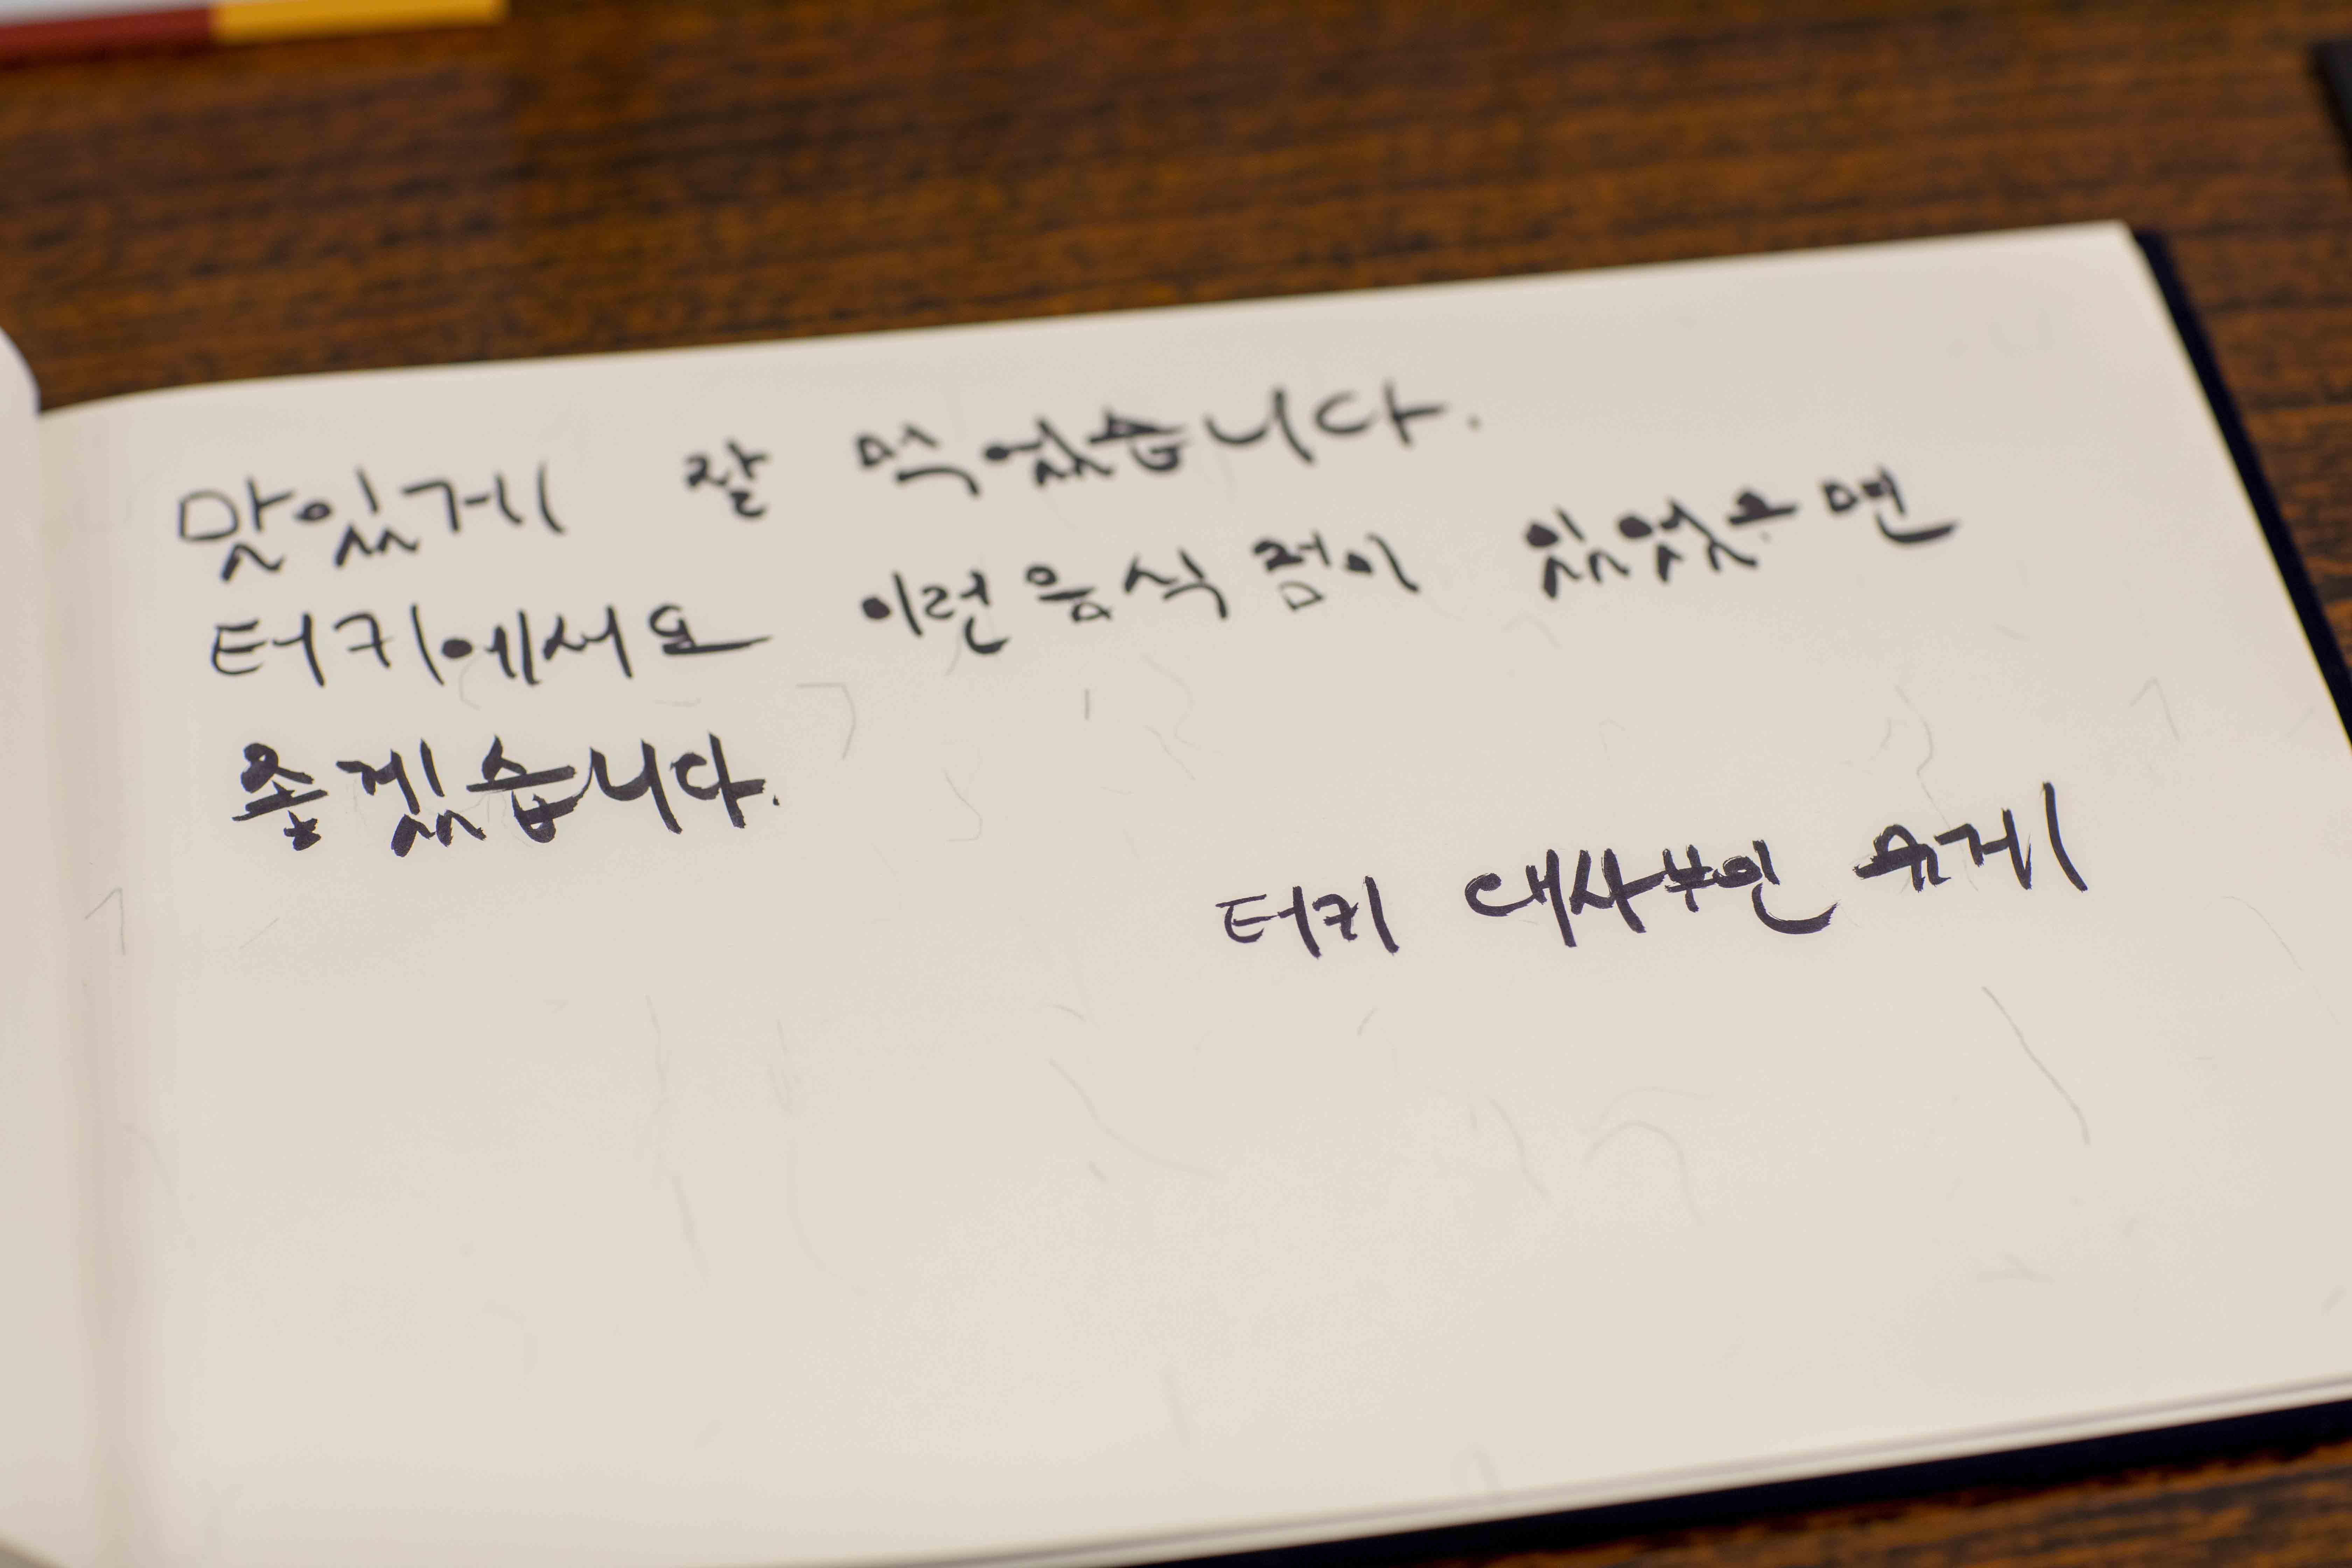 맛있게 잘 먹었습니다.
터키에서요 이런 음식점이 있었으면
좋겠습니다.
터키 대사부인